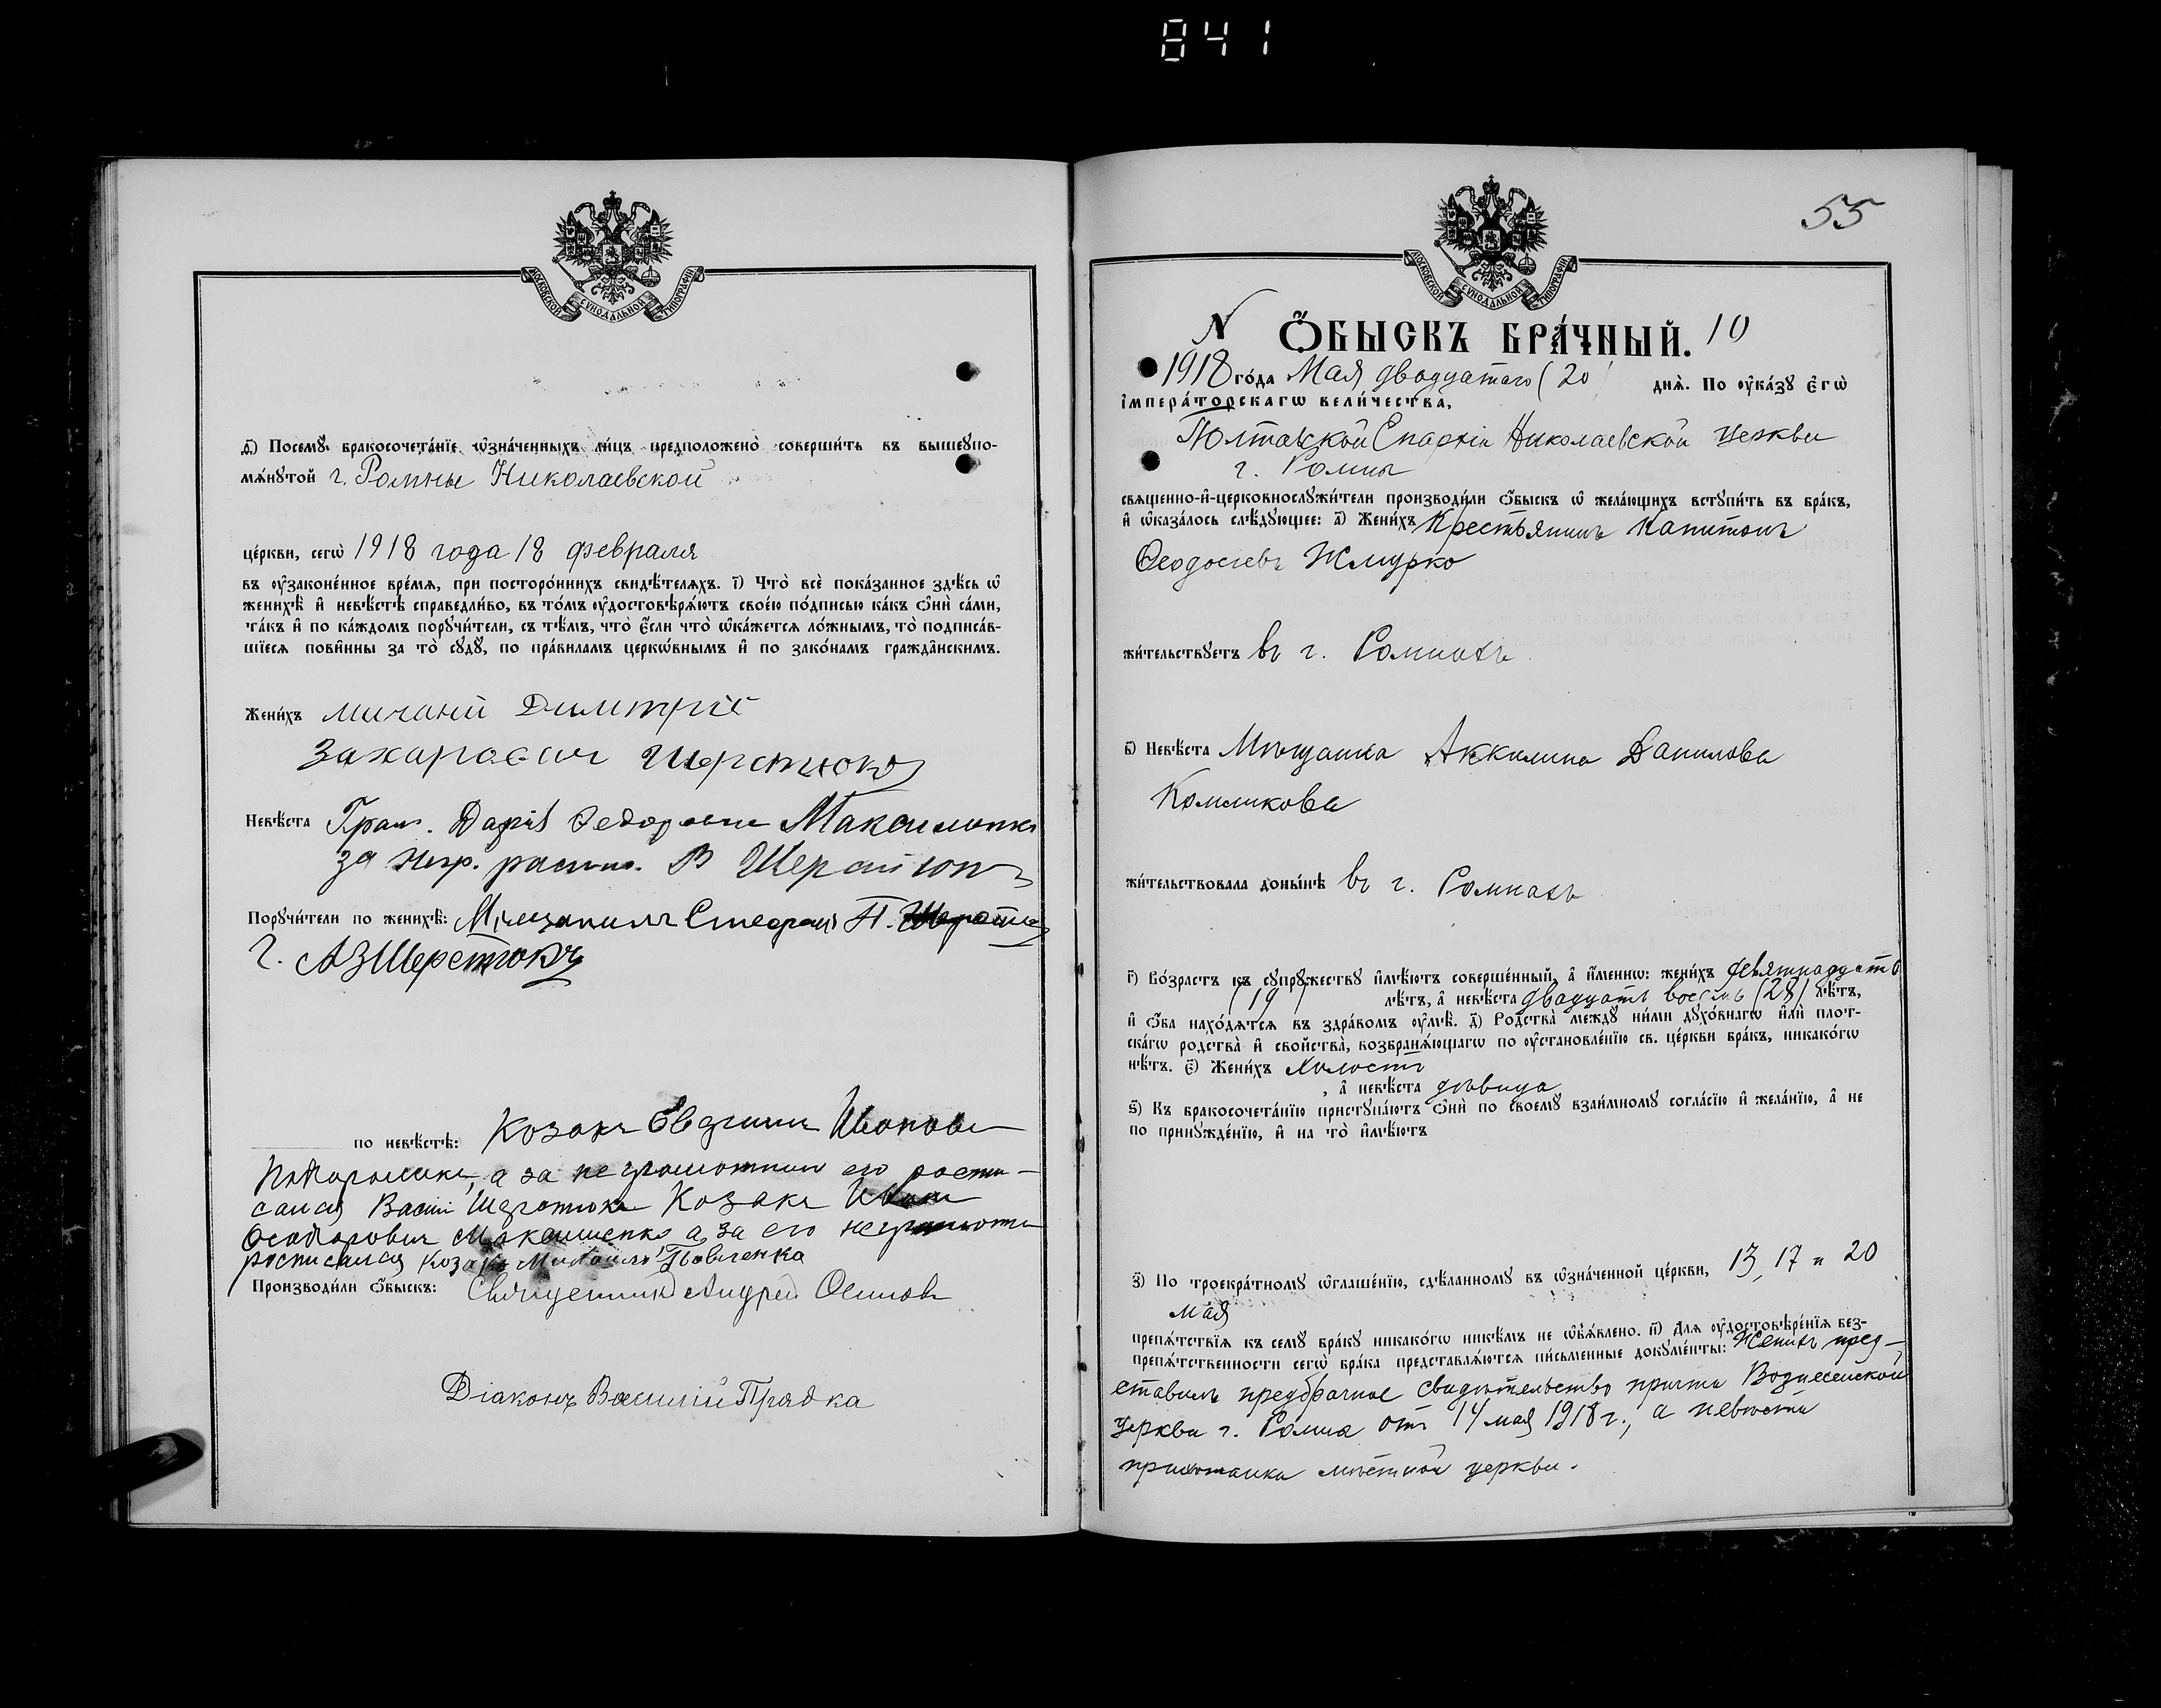 841
МОСКОВСКОЙ СѴНОДАЛЬНОЙ ТИПОГРАФІИ
ѳ҃) Посемꙋ̀ бракосочета́нїе ѡ҆зна́ченныхъ ли́цъ предположено̀ соверши́ть въ вышеꙋпо-
мѧ́нꙋтой г. Ромны Николаевской
це́ркви, сегѡ̀ 1918 года 18 февраля
въ ᲂу҆законе́нное вре́мѧ, при посторо́ннихъ свидѣ́телѧхъ. і҃) Что̀ всѐ пока́занное здѣ́сь ѡ҆
женихѣ̀ и҆ невѣ́стѣ справедли́во, въ то́мъ ᲂу҆достовѣрѧ́ютъ свое́ю по́дписью ка́къ ѻ҆нѝ са́ми,
та́къ и҆ по ка́ждомъ порꙋчи́тели, съ тѣ́мъ, что̀ є҆́сли что̀ ѡ҆ка́жетсѧ ло́жнымъ, то̀ подписа́в-
шїесѧ пови́нны за то̀ сꙋдꙋ̀, по пра́виламъ церкѡ́внымъ и҆ по зако́намъ гражда̑нскимъ.
Жени́хъ Димитрій
Захарович Шерстюкъ
Невѣ́ста Дарія Федоровна Максименко
за негр. В Шерстюкъ
Порꙋчи́тели по женихѣ̀: Мещанинъ Стефанъ П.
Г. А З Шерстюкъ
по невѣ́стѣ: Козакъ Ивановъ
а за неграмотнаго его роспи-
сался Шерстюкъ Козакъ Иванъ
Феодоровичъ Максименко а за его неграмотн
росписался Козакъ Михаилъ Павленко
Производи́ли ѻ҆́быскъ: Священникъ Андрей Осиповъ
Діаконъ Василій Прядка
55
МОСКОВСКОЙ СѴНОДАЛЬНОЙ ТИПОГРАФІИ
N Ѻ҆́БЫСКЪ БРА́ЧНЫЙ. 10
1918 го́да Мая двадцатаго (20) днѧ̀. По ᲂу҆ка́зꙋ є҆гѡ̀
і҆мпера́торскагѡ вели́чества,
Полтавской Епархіи Николаевской церкви
г. Ромны
свѧщенно-и҆-церковнослꙋжи́тели производи́ли ѻ҆́быскъ ѡ҆ жела́ющихъ встꙋпи́ть въ бра́къ,
и҆ ѡ҆каза́лось слѣ́дꙋющее: а҃) Жени́хъ Крестьянинъ Капитонъ
Ѳеодосіевъ Жмурко
жи́тельствꙋетъ въ г. Ромнахъ
в҃) Невѣ́ста Мѣщанка Аккилина Данилова
Комликова
жи́тельствовала доны́нѣ въ г. Ромнахъ
г҃) Во́зрастъ къ сꙋпрꙋ́жествꙋ и҆мѣ́ютъ соверше́нный, а҆ и҆́менно: жени́хъ девятнадцать
(19) лѣ́тъ, а҆ невѣ́ста двадцать восемь (28) лѣ́тъ,
и҆ ѻ҆́ба нахо́дѧтсѧ въ здра́вомъ ᲂу҆мѣ̀. д҃) Родства̀ междꙋ ни́ми дꙋхо́внагѡ и҆лѝ плот-
ска́гѡ родства̀ и҆ свойства̀, возбранѧ́ющагѡ по ᲂу҆становле́нїю св. це́ркви бра́къ, никако́гѡ
нѣ́тъ. є҃) Жени́хъ Холостъ
, а҆ невѣ́ста дѣвица
ѕ҃) Къ бракосочета́нїю пристꙋпа́ютъ ѻ҆нѝ по своемꙋ̀ взаи́мномꙋ согла́сїю и҆ жела́нїю, а҆ не
по принꙋжде́нїю, и҆ на то̀ и҆мѣ́ютъ
з҃) По троекра́тномꙋ ѡ҆глаше́нїю, сдѣ́ланномꙋ въ ѡ҆зна́ченной це́ркви, 13, 17 и 20
мая
препѧ́тствїѧ къ семꙋ̀ бра́кꙋ никако́гѡ никѣ́мъ не ѡ҆б̾ѧ́влено. и҃) Длѧ ᲂу҆достовѣре́нїѧ без-
препѧ́тственности сегѡ̀ бра́ка представлѧ́ютсѧ пи́сьменные докꙋме́нты: Женихъ пред-
ставилъ предбрачное свидѣтельство причта Вознесенской
церкви г. Ромна отъ 14 мая 1918 г., а невѣста
прихожанка мѣстной церкви.